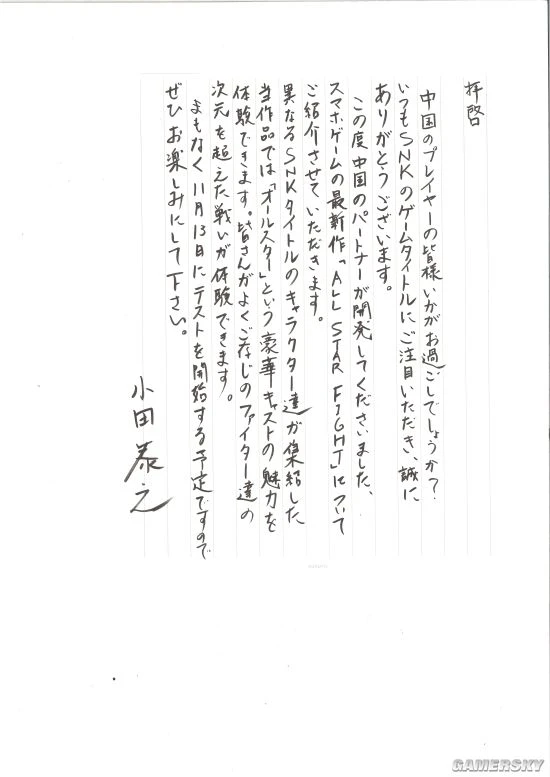 拝啓
中国のプレイヤーの皆様いかがお過ごしでしょうか?
いつもSNKのゲームタイトルにご注目いただき、誠に
ありがとうございます。
この度中国のパートナーが開発してくださいました、
スマホゲームの最新作「ALL STAR FIGHT」について
ご紹介させていただきます。
異なるSNKタイトルのキャラクター達が集結した
当作品では「オールスター」という豪華キャストの魅力を
体験できます。皆さんがよくご存じのファイター達の
次元を超えた戦いが体験できます。
まもなく11月13日にテストを開始する予定ですので
ぜひお楽しみにして下さい。
小田泰之
GAMERSKY